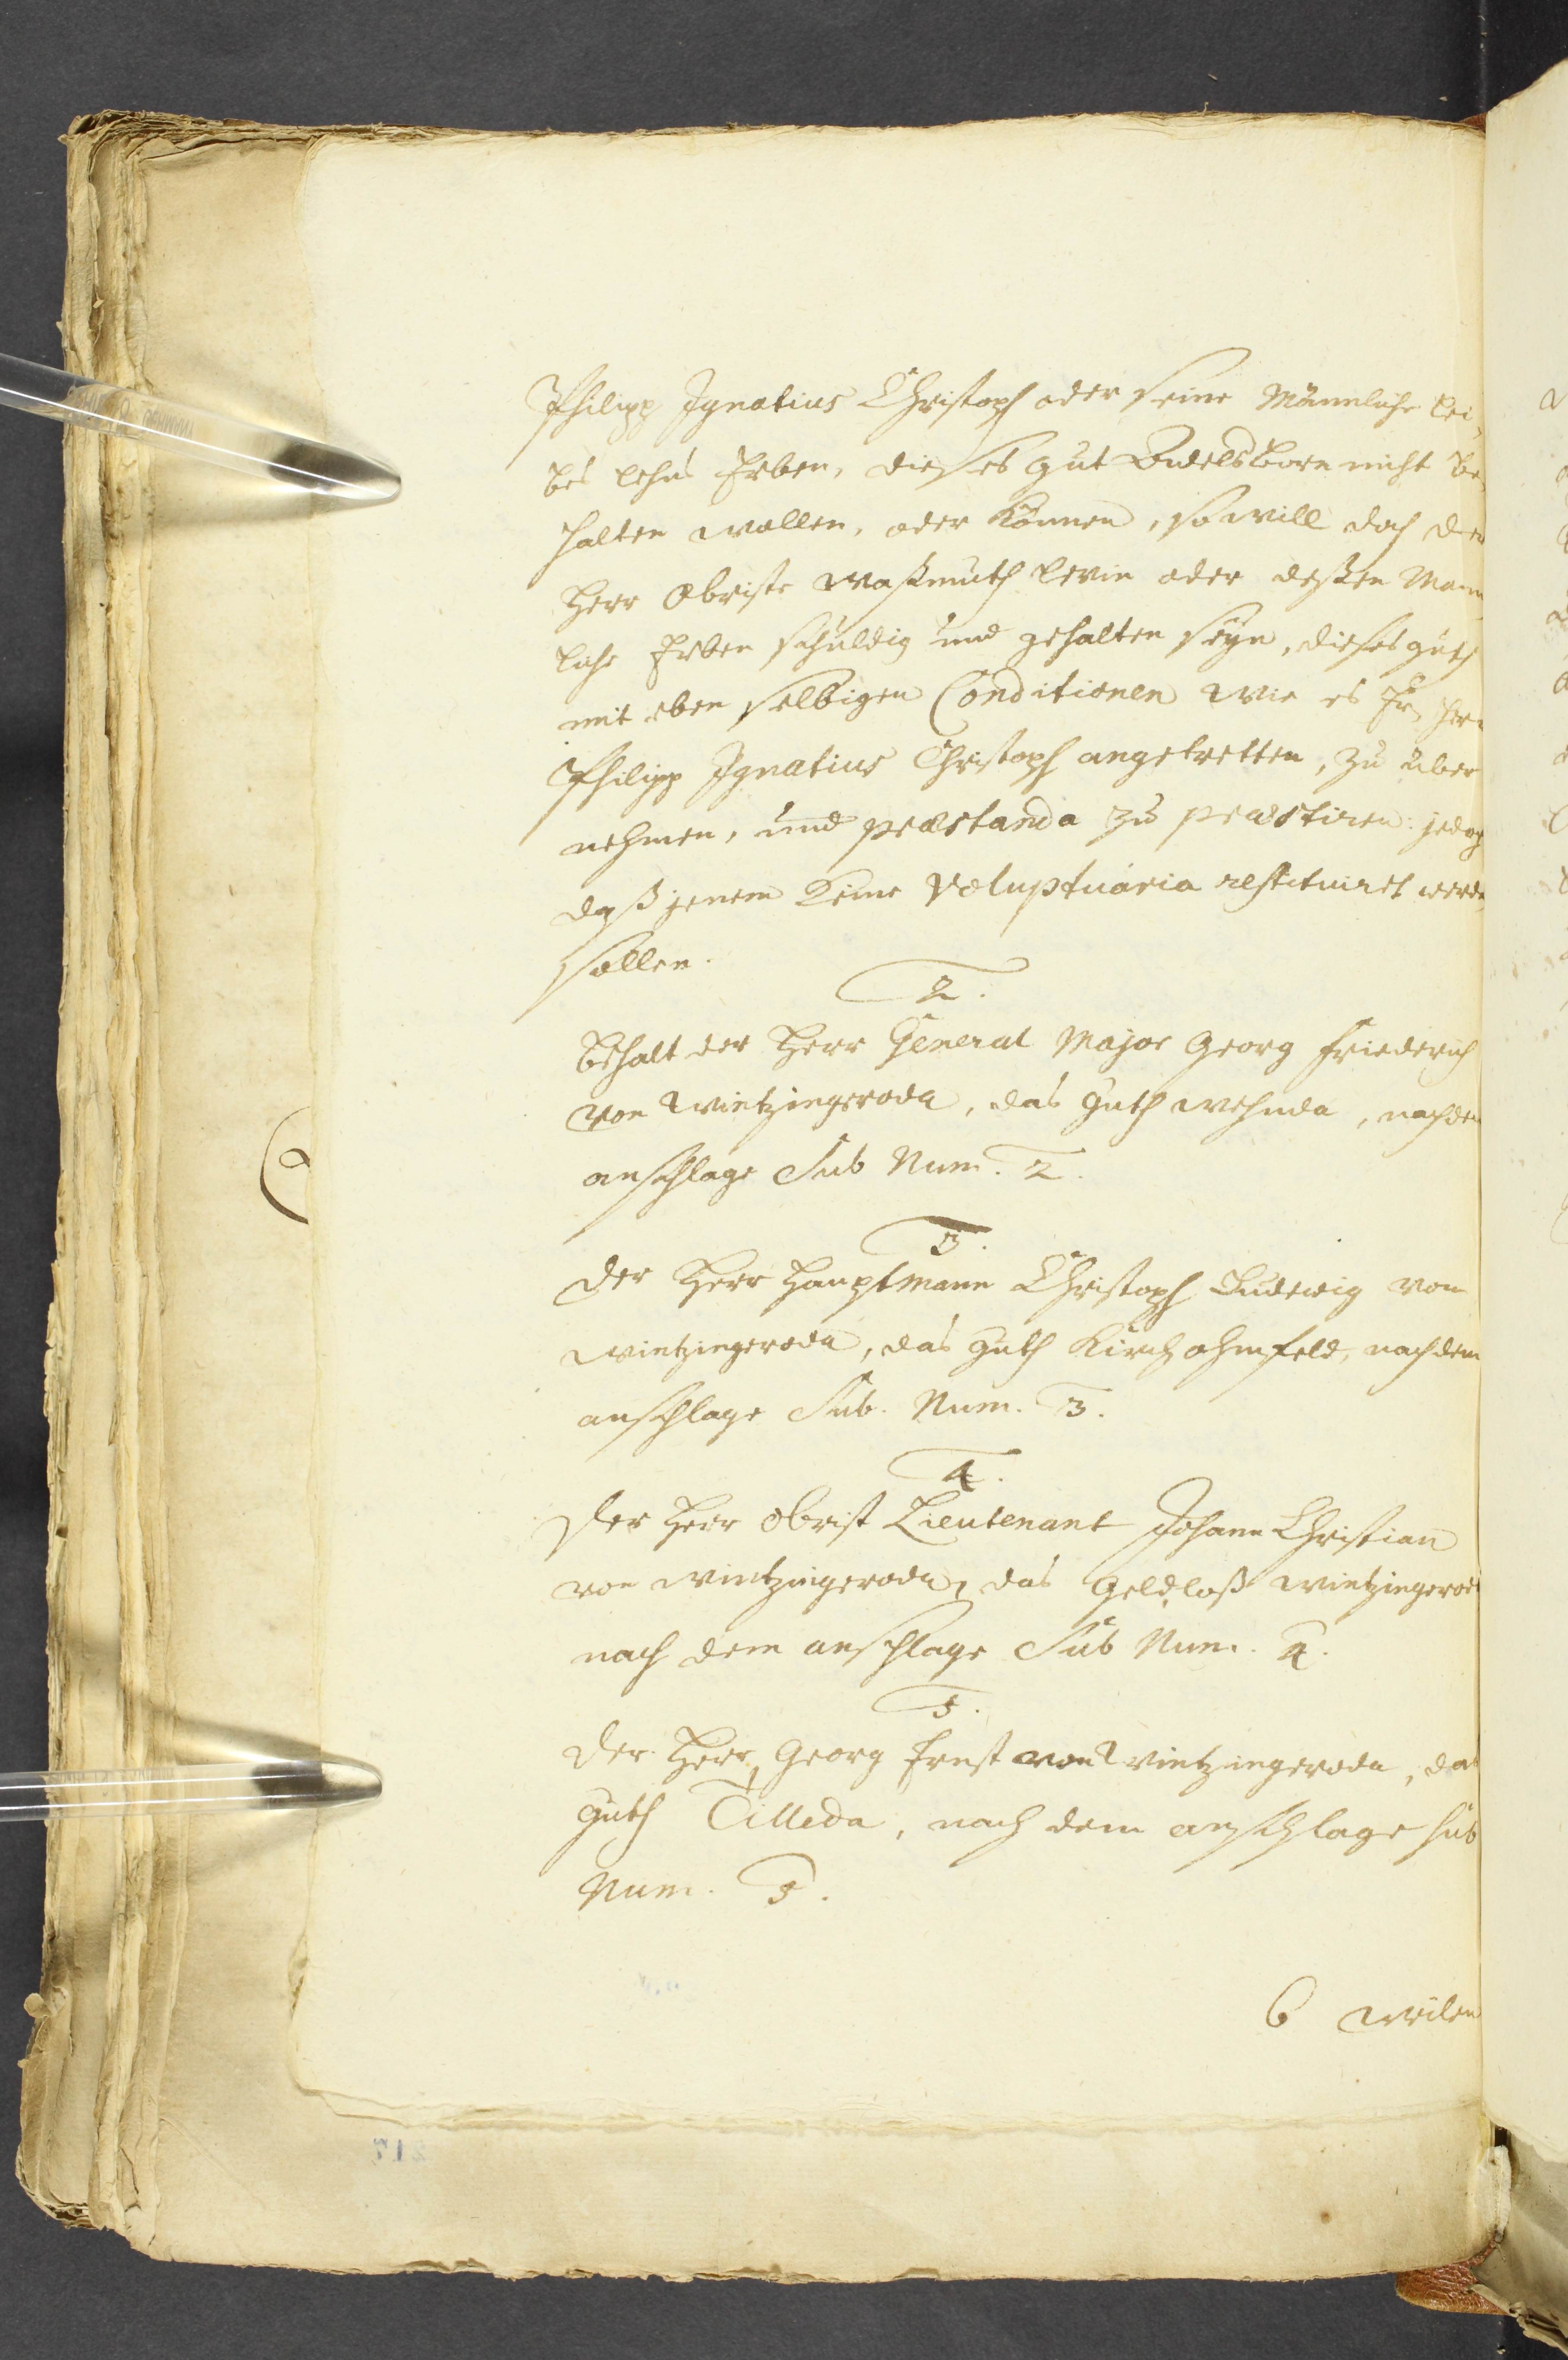 Philipp Ignatius Christoph oder seine Männliche Lei-
bes Lehns Erben, dieses Gut Bodelsborn nicht be-
halten wollen, oder können, so will doch der
Herr Obriste Waßmuth Levin oder deßen Mann-
liche Erben schuldig und gehalten seyn, dieses Guth
mit eben selbigen Conditionen wie es Er, Herr
Philipp Ignatius Christoph angetretten, zu über
nehmen, und præstanda zu præstiren: jedoch
daß jenem keine Voluptuaria restituiret werden
sollen.
2.
Behalt der Herr General Major Georg Friederich
von Wintzingeroda, das Guth Wehnda, nach dem
anschlage Sub Num. 2.
3.
Der Herr Hauptmann Christoph Ludewig von
Wintzingeroda, das Guth Kirchohmfeld, nach dem
anschlage Sub. Num. 3.
4.
Der Herr Obrist Lieutenant Johann Christian
von Wintzingeroda, das Geldloß Wintzingerod
nach dem anschlage Sub Num. 4.
5.
Der Herr, Georg Ernst von Wintzingeroda, das
Guth Tilleda, nach dem anschlage sub
Num. 5.
6 Weilen
217